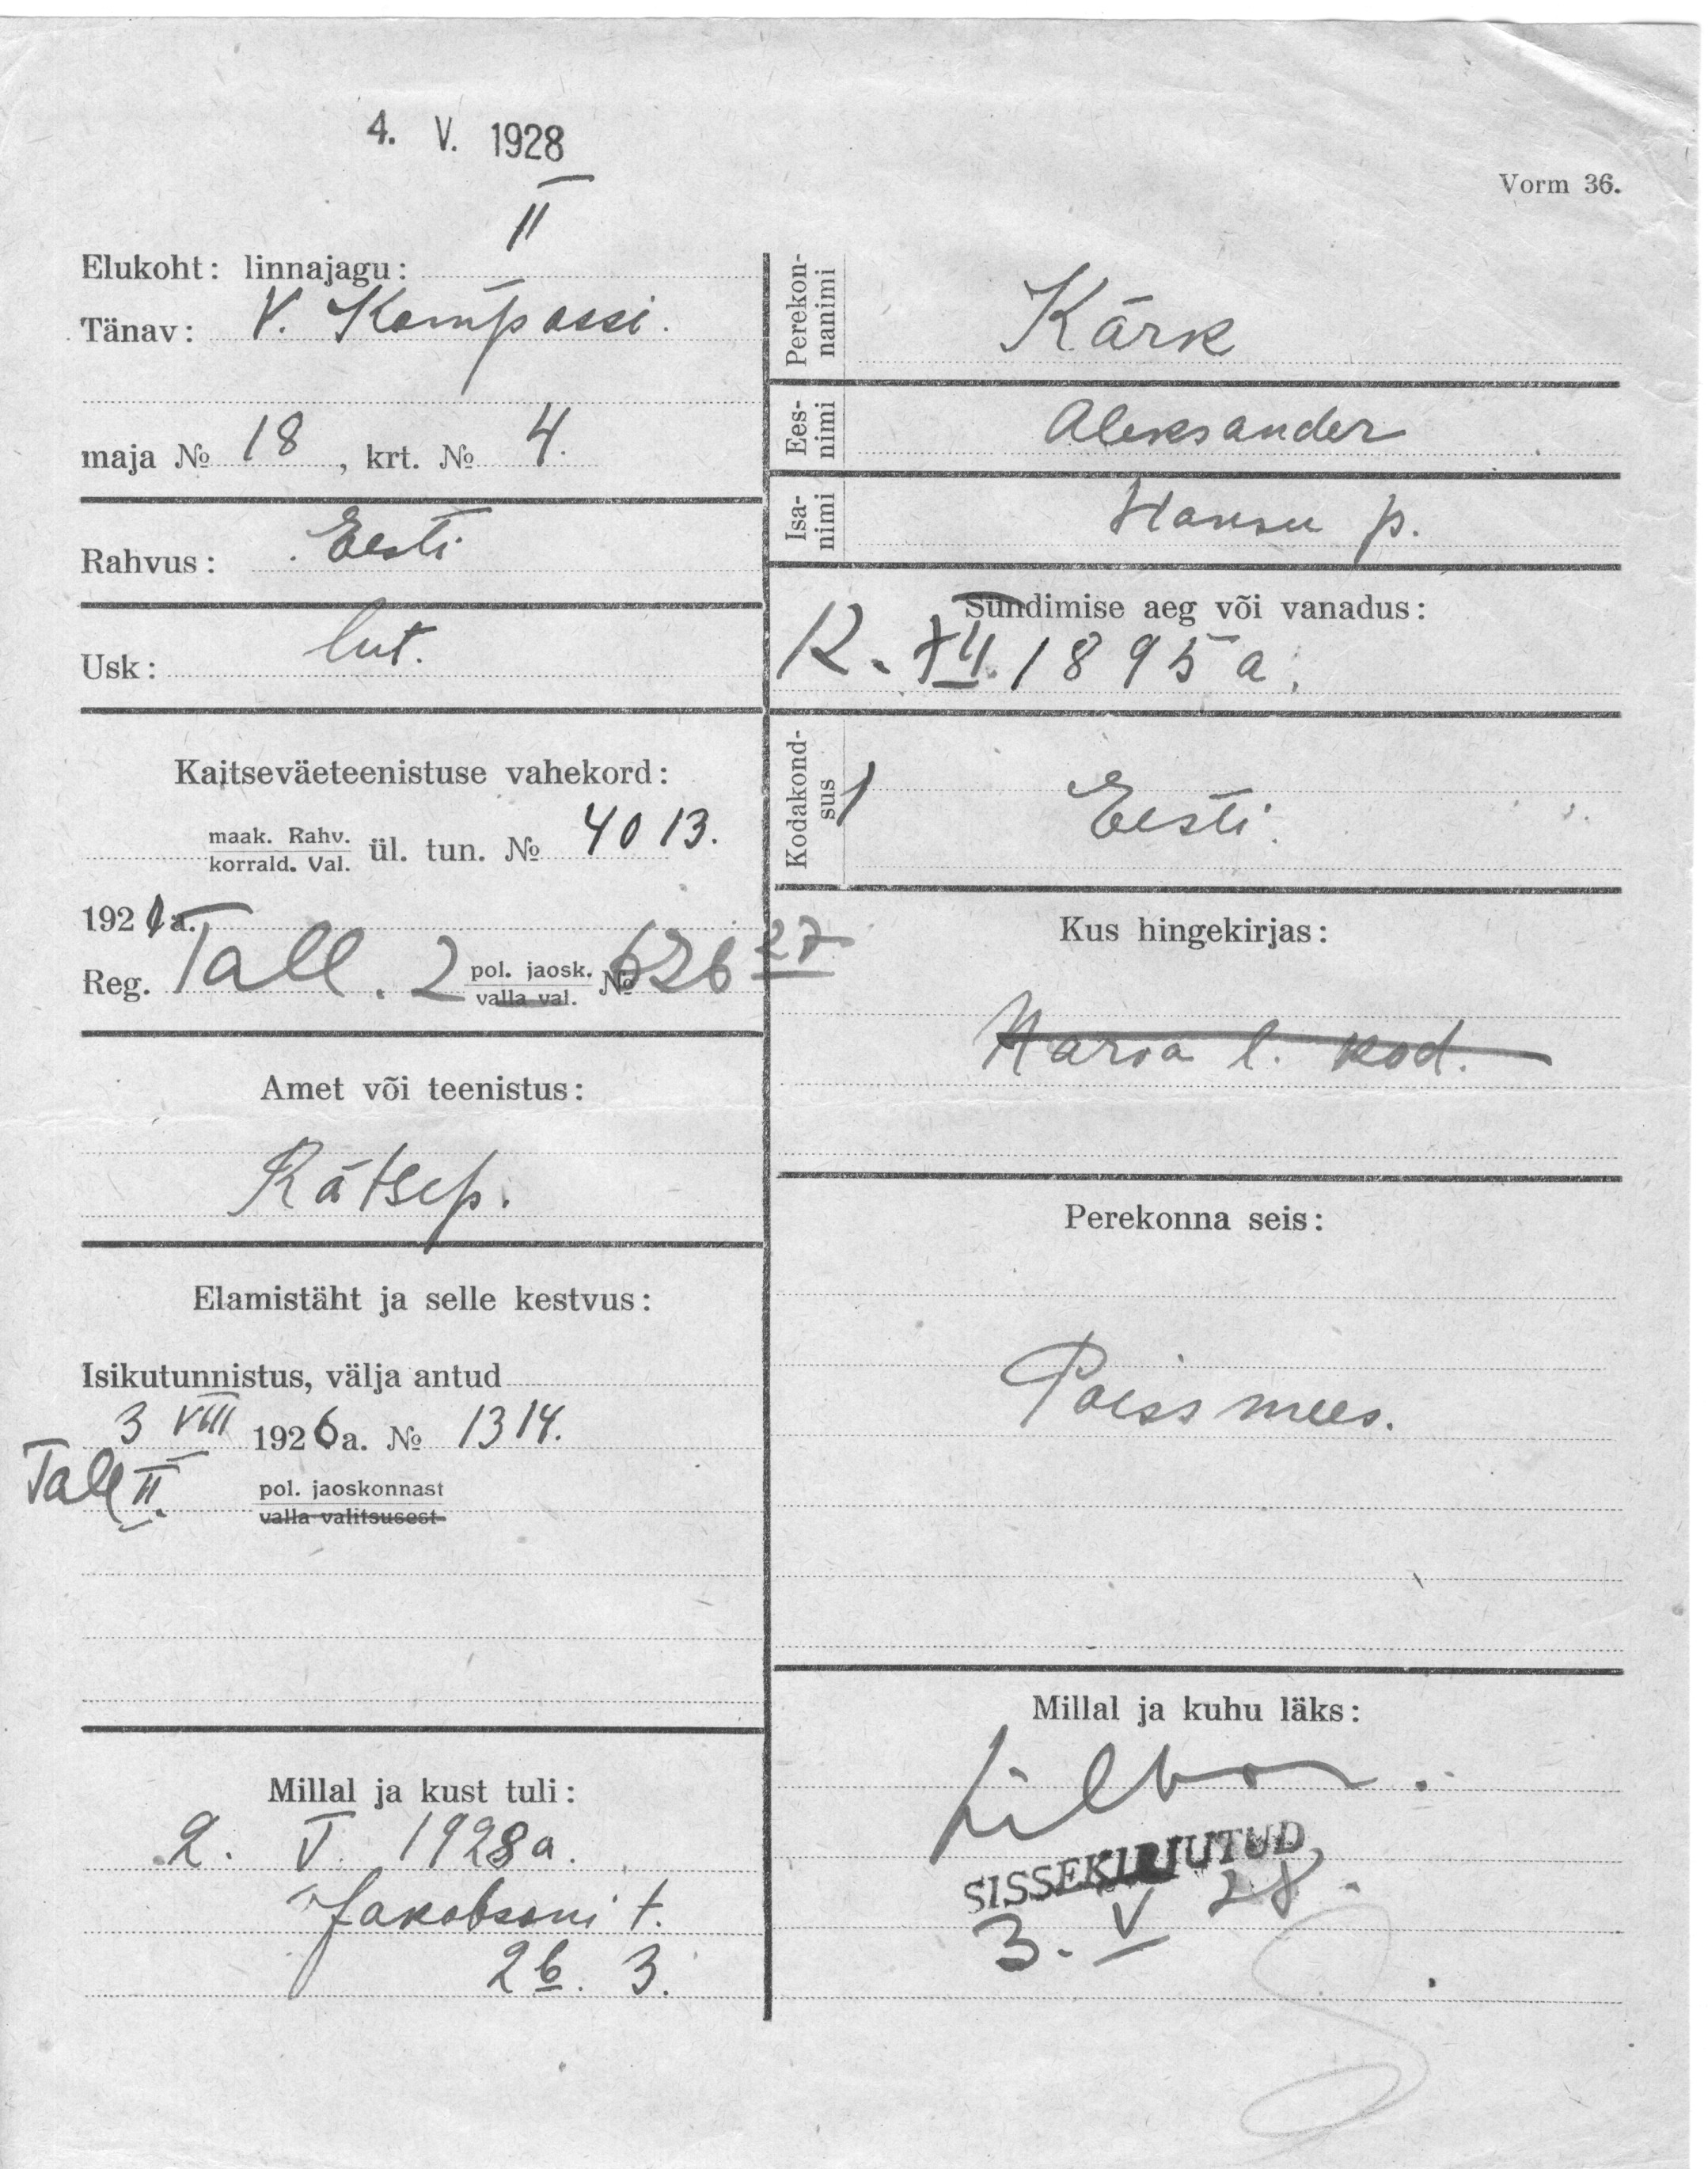 4. V. 1928
Vorm 36.
II
Elukoht: linnajagu:
Tänav: V. Kompassi.
maja № 18, krt. № 4.
Rahvus: Eesti
Usk: lut.
Kaitseväeteenistuse vahekord:
maak. Rahv.
korrald. Val. ül. tun. № 4013.
1921 a.
Reg. Tall. 2 pol. jaosk. № 626 27
valla val.
Amet või teenistus:
Rätsep.
Elamistäht ja selle kestvus:
Isikutunnistus, välja antud
3 VIII 1926 a. № 1314.
Tall II. pol. jaoskonnast
valla valitsusest
Millal ja kust tuli:
2. V. 1928 a.
Jakobsoni t.
26. 3.
Perekon-
nanimi
Kärk
Ees-
nimi
Aleksander
Isa-
nimi
Hansu p.
Sündimise aeg või vanadus:
12. XII. 1895 a.
Kodakond-
sus
Eesti.
Kus hingekirjas:
Narva l. kod.
Perekonna seis:
Poissmees.
Millal ja kuhu läks:
SISSEKIRJUTUD
3. V 28.